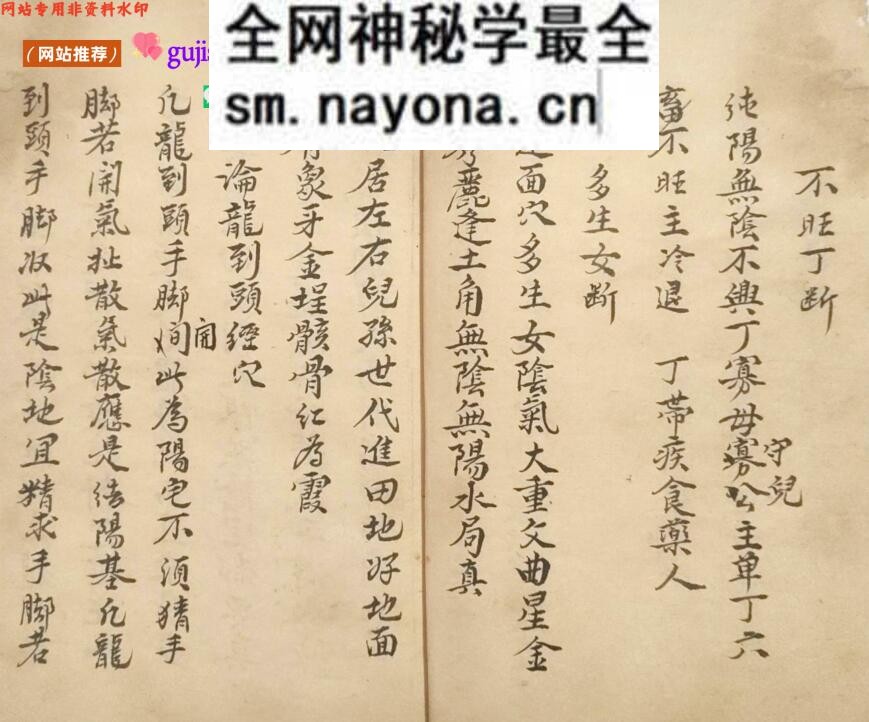 网站专用非资料水印
(网站推荐)
gujis
全网神秘学最全
sm.nayona.cn
不旺丁断
纯陽無陰不興丁寡母寡公主单丁六
守兒
畜不旺主冷退 丁帶疾食藥人
多生女断
面穴多生女陰氣大重文曲星金
麗逢土角無陰無陽水局真
居左右兒孫世代進田地好地面
象牙金埕骸骨红為霞
論龍到頭經穴
凢龍到頭手脚開此為陽宅不須猜手
脚若開氣扯散氣散應是纯陽基凢龍
到頭手脚收此是陰地宜精求手脚若